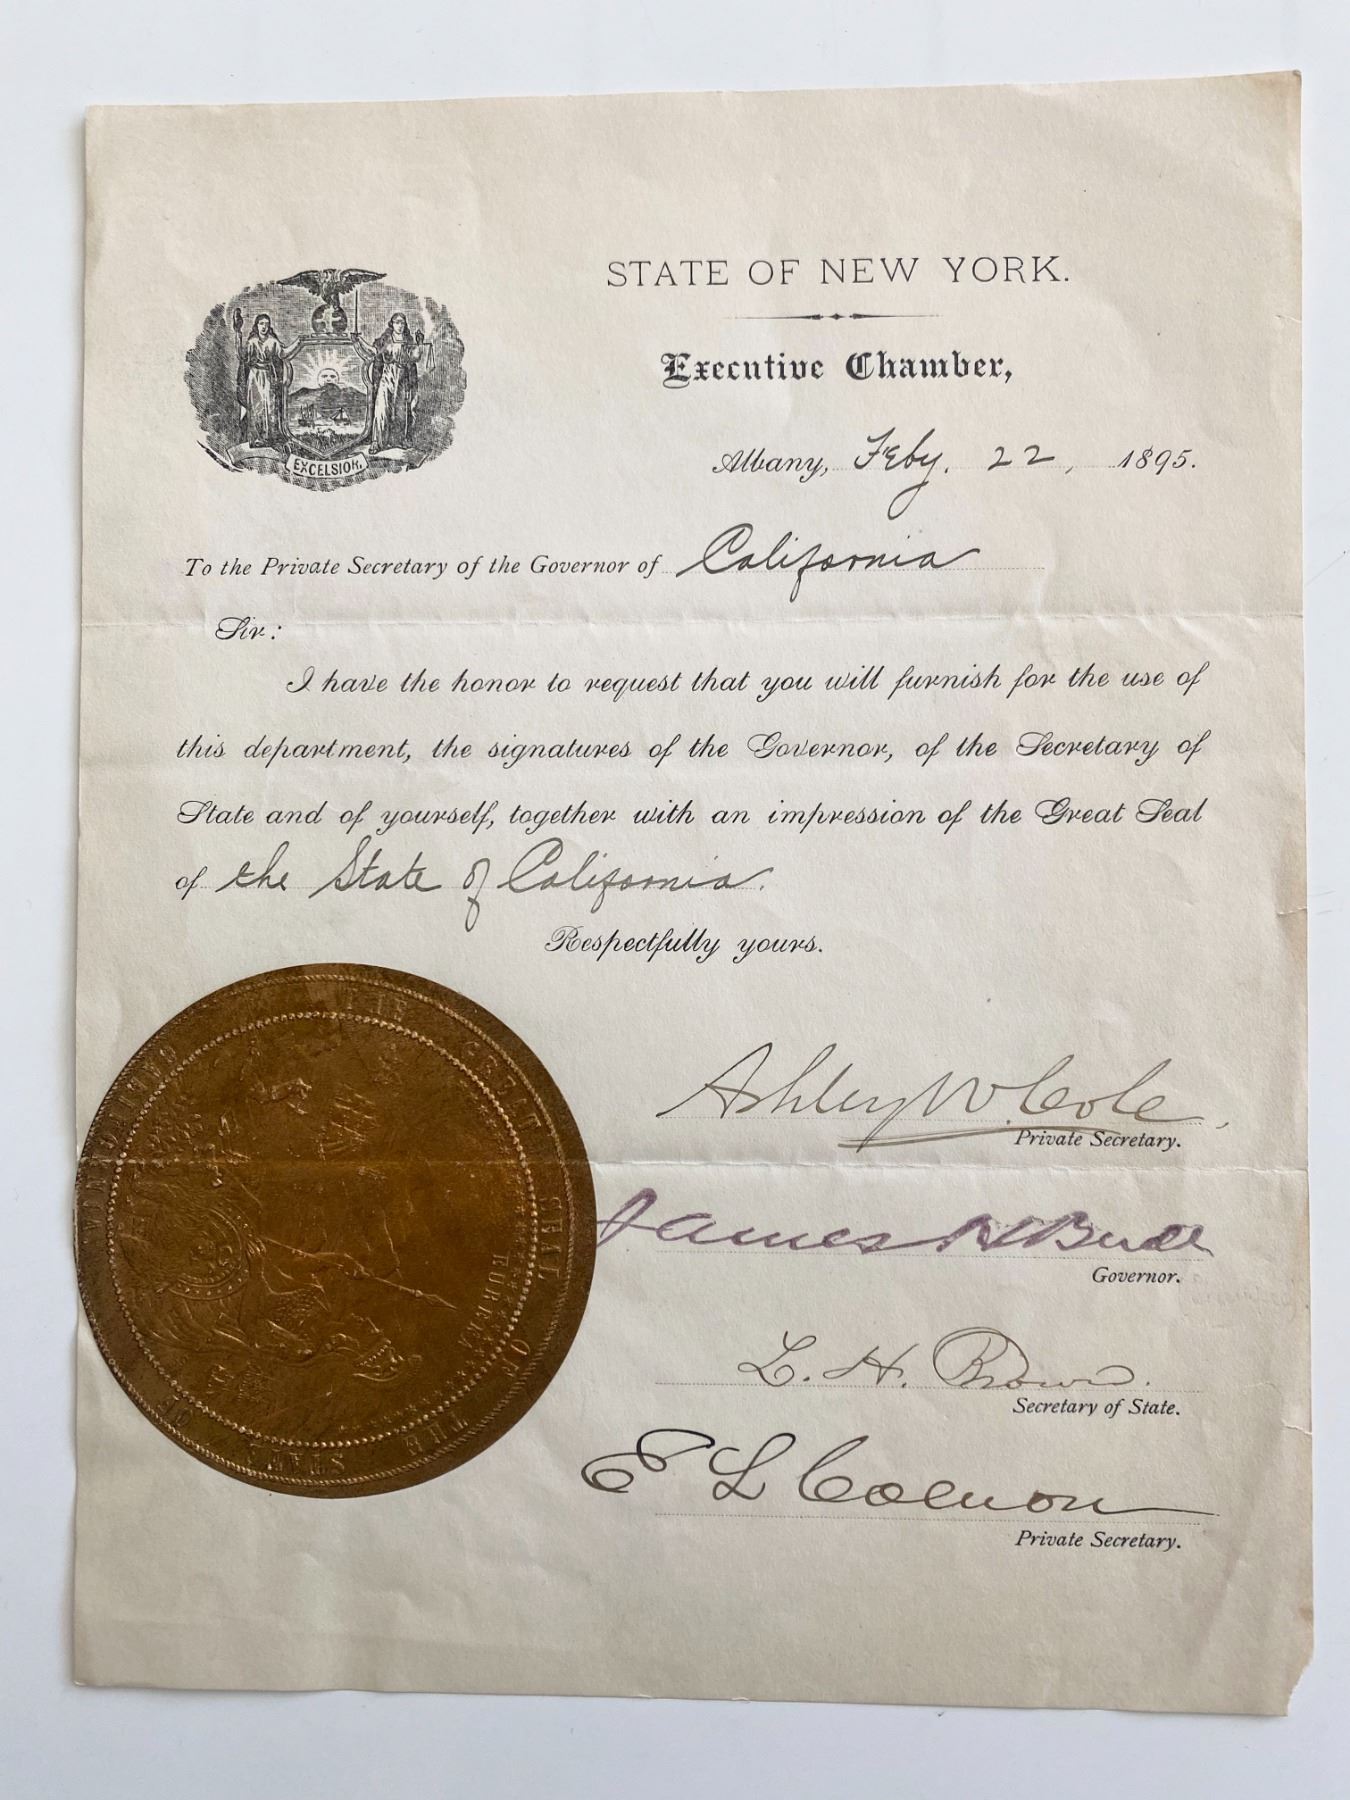 STATE OF NEW YORK.
Executive Chamber,
EXCELSIOR.
Albany, Feby. 22, 1895.
To the Private Secretary of the Governor of California
Sir:
I have the honor to request that you will furnish for the use of
this department, the signatures of the Governor, of the Secretary of
State and of yourself, together with an impression of the Great Seal
of the State of California.
Respectfully yours.
Ashley W. Cole
Private Secretary.
James H Budd
Governor.
L. H. Brown.
Secretary of State.
E L Colnon
Private Secretary.
THE GREAT SEAL OF THE STATE OF CALIFORNIA
EUREKA